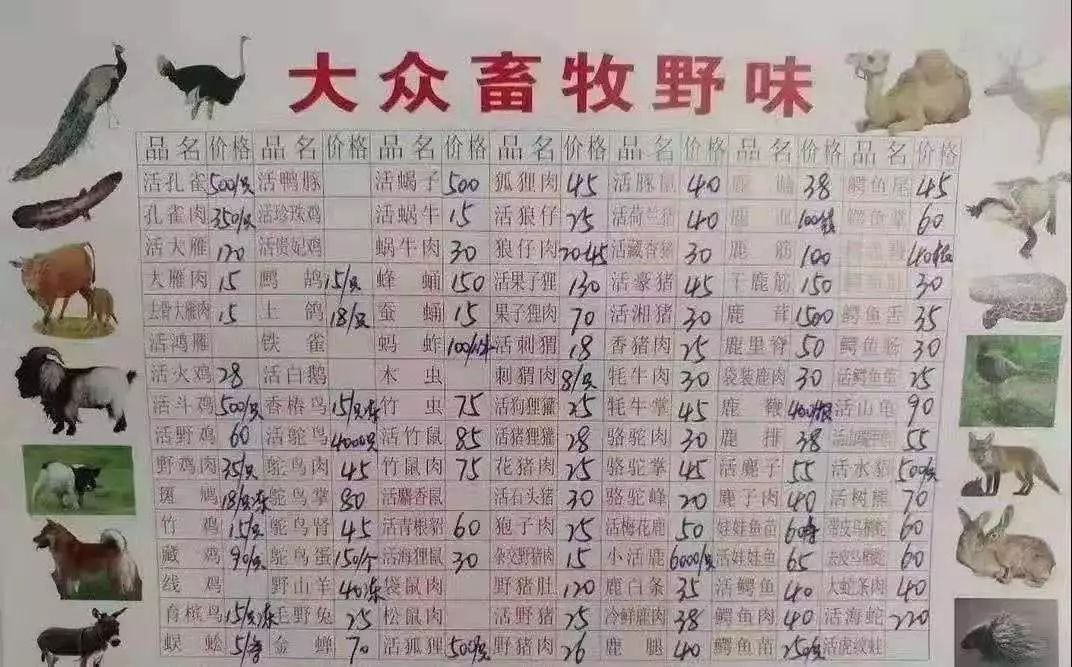 大众畜牧野味
品名 价格 品名 价格 品名 价格 品名 价格 品名 价格 品名 价格 品名 价格
活孔雀 500/只 活鸭豚 活蝎子 500 狐狸肉 45 活豚鼠 40 鹿 38 鳄鱼尾 45
孔雀肉 350/只 活珍珠鸡 活蜗牛 15 活狼仔 25 活荷兰猪 40 鹿血 鳄鱼掌 60
活大雁 120 活贵妃鸡 蜗牛肉 30 狼仔肉 活藏香猪 30 鹿筋 100
大雁肉 15 鹧鸪 15/只 蜂蛹 150 活果子狸 130 活豪猪 45 干鹿筋 150 30
去骨大雁肉 15 土鸽 18/只 蚕蛹 15 果子狸肉 70 活湘猪 30 鹿茸 1500 鳄鱼舌 35
活鸿雁 铁雀 蚂蚱 活刺猬 18 香猪肉 25 鹿里脊 50 鳄鱼肠 30
活火鸡 28 活白鹅 木虫 刺猬肉 8/只 牦牛肉 30 袋装鹿肉 30 活鳄鱼 25
活斗鸡 500/只 香椿鸟 15/只冻 竹虫 75 活狗狸獾 25 牦牛掌 45 鹿鞭 活山龟 90
活野鸡 60 活鸵鸟 4000只 活竹鼠 85 活猪狸獾 28 骆驼肉 30 鹿排 38 55
野鸡肉 35/只 鸵鸟肉 45 竹鼠肉 75 花猪肉 25 骆驼掌 45 活麂子 55 活水貂 500/只
斑鸠 18/只冻 鸵鸟掌 80 活麝香鼠 活石头猪 30 骆驼峰 20 麂子肉 40 活树熊 70
竹鸡 15/只 鸵鸟肾 45 活青根貂 60 狍子肉 25 活梅花鹿 50 娃娃鱼苗 带皮马鬃蛇 60
藏鸡 90/只 鸵鸟蛋 150/个 活海狸鼠 30 杂交野猪肉 15 小活鹿 6000/只 活娃娃鱼 65 去皮马鬃蛇 60
线鸡 野山羊 40冻 袋鼠肉 野猪肚 120 鹿白条 35 活鳄鱼 40 大蛇条肉 40
育槟鸟 15/只冻 毛野兔 25 松鼠肉 活野猪 25 冷鲜鹿肉 38 鳄鱼肉 40 活海蛇 220
蜈蚣 金蝉 70 活狐狸 500/只 野猪肉 26 鹿腿 40 鳄鱼苗 250/只 活虎纹蛙